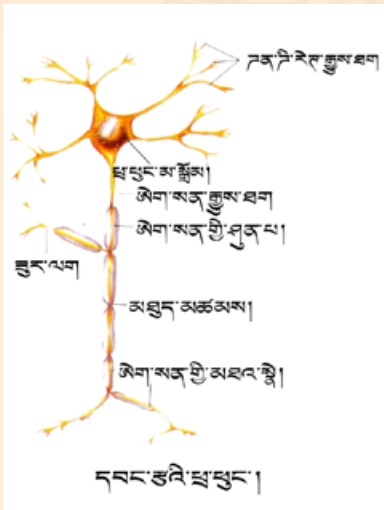 ཌན་ཌི་རེཊ་རྒྱུས་ཐག
ཕྲ་ཕུང་མ་སྒྲོམ།
ཨེག་སན་རྒྱུས་ཐག
ཨེག་སན་གྱི་ཤུན་པ།
ཟུར་ལག
མཐུད་མཚམས།
ཨེག་སན་གྱི་མཐའ་སྣེ།
དབང་རྩའི་ཕྲ་ཕུང་།